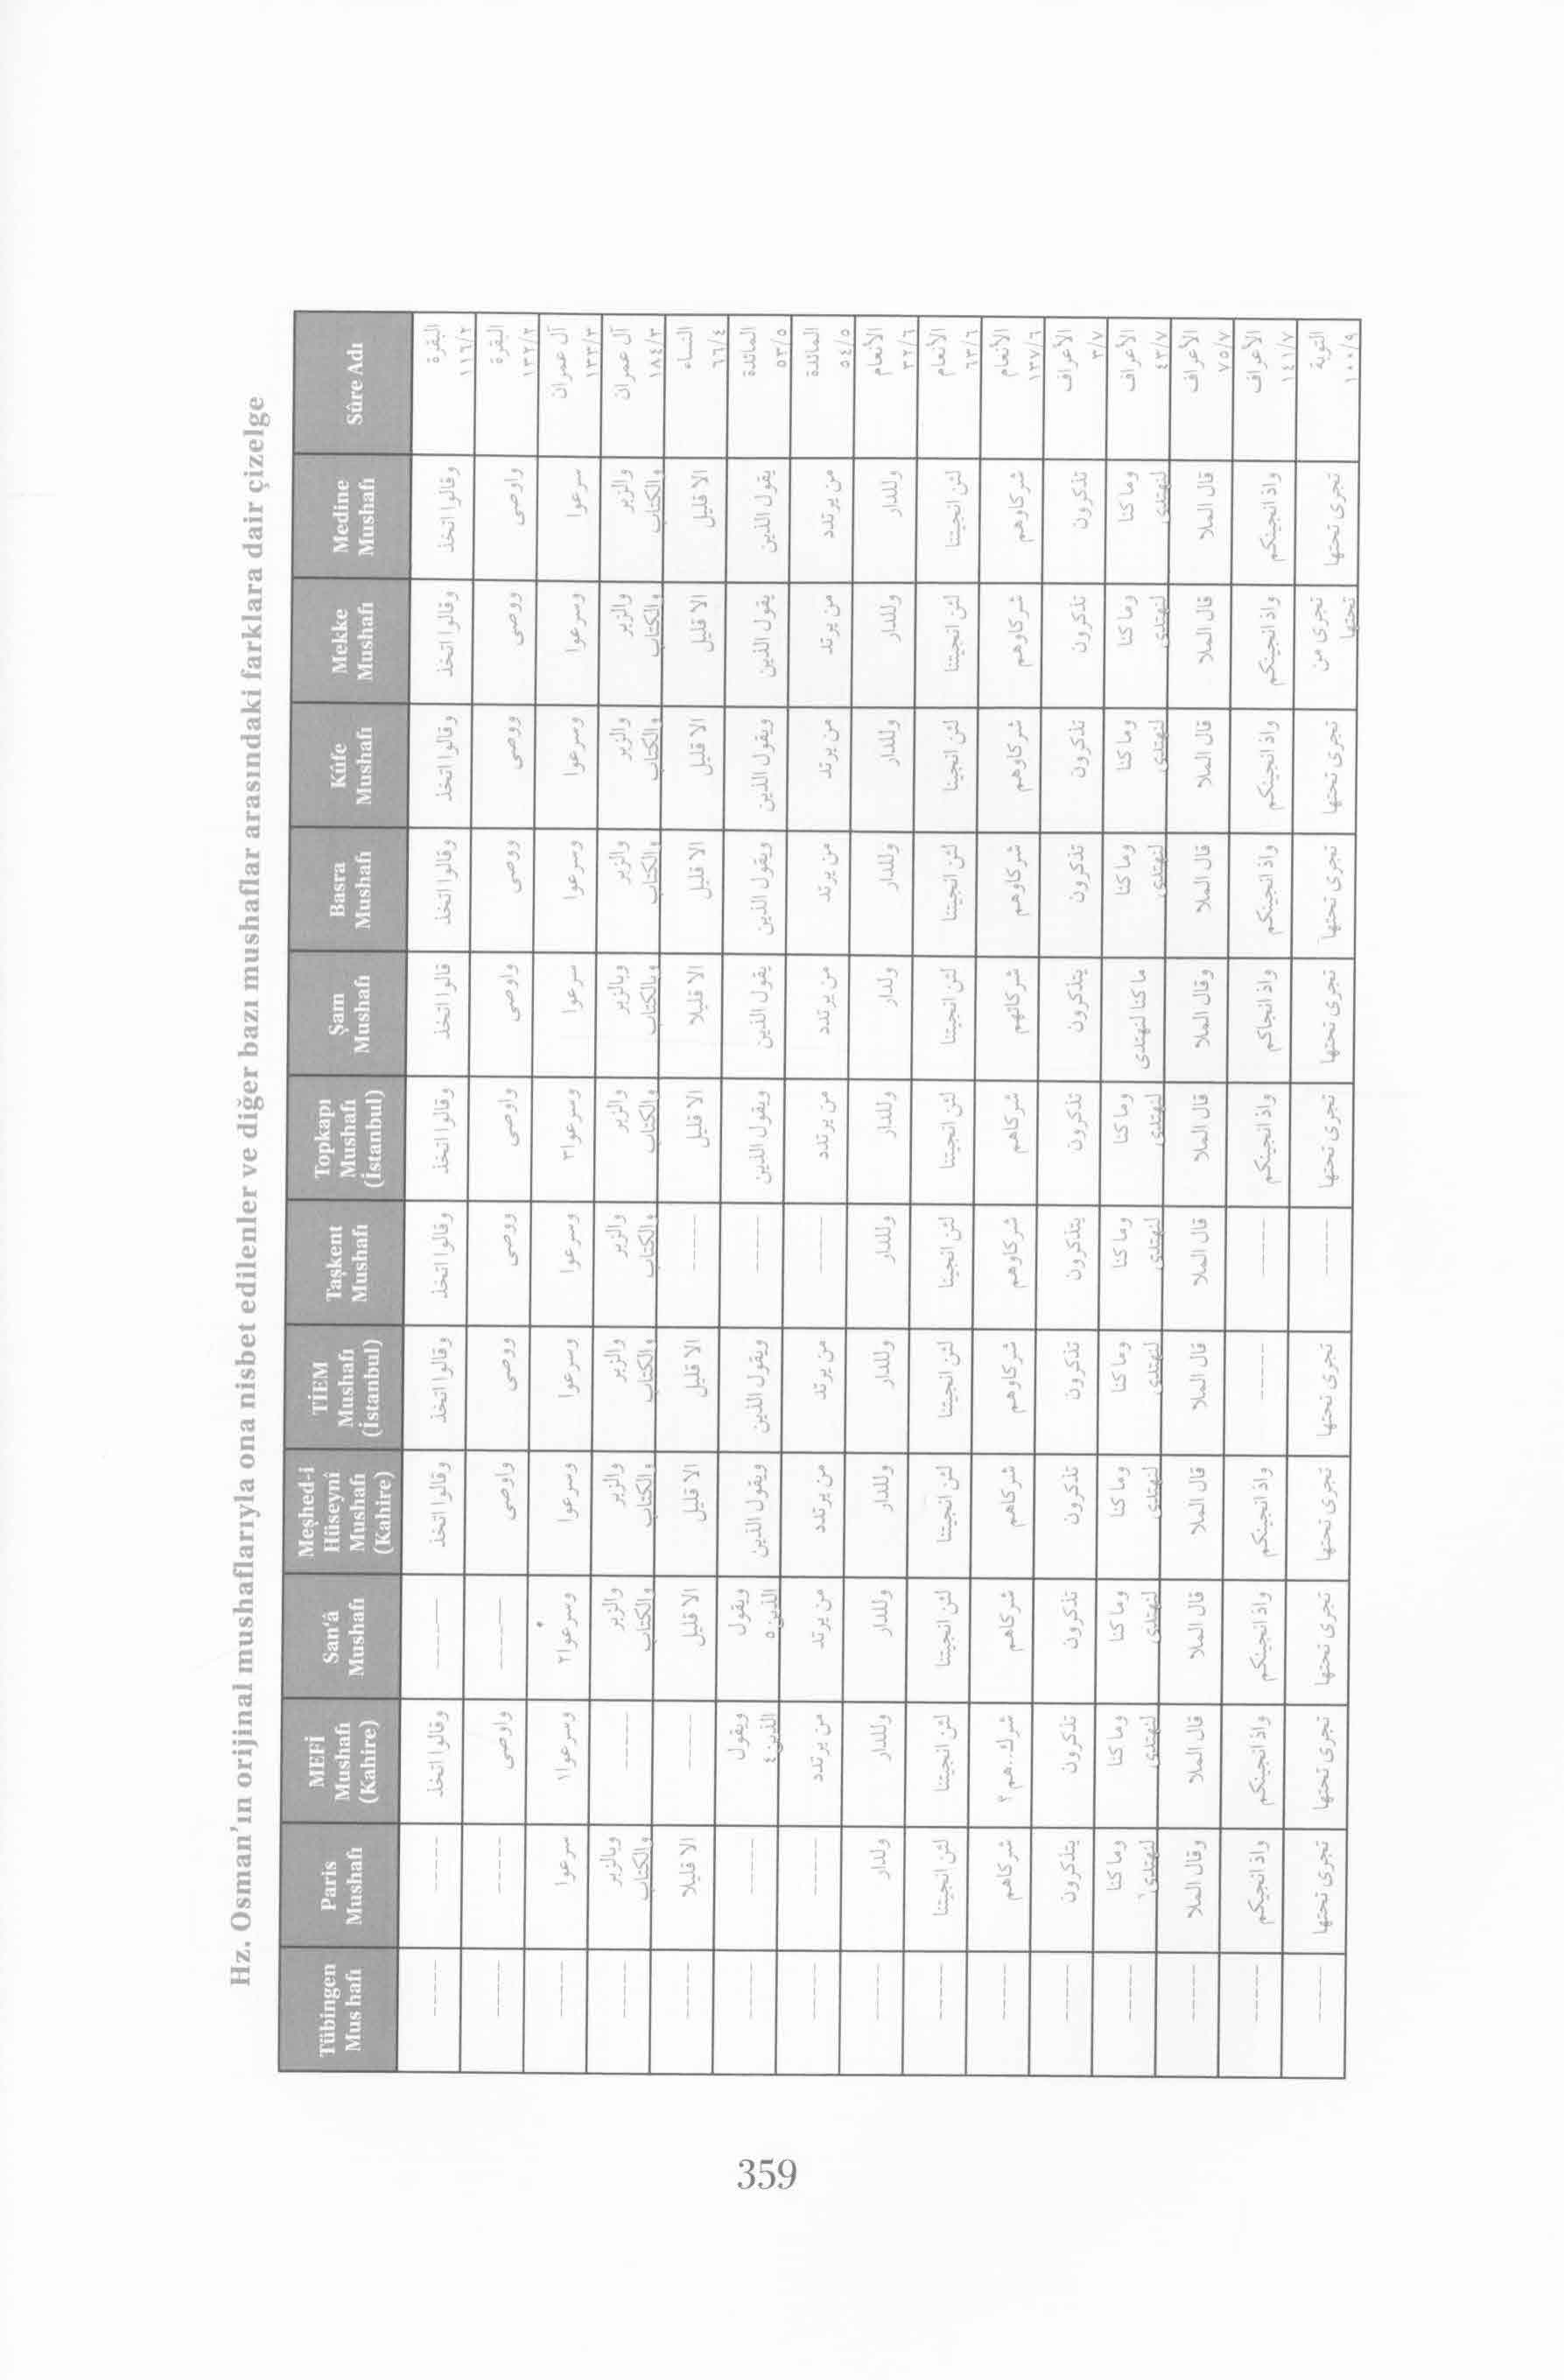 Hz. Osman'ın orijinal mushaflarıyla ona nisbet edilenler ve diğer bazı mushaflar arasındaki farklara dair çizelge
Sûre Adı | Medine Mushafı | Mekke Mushafı | Kûfe Mushafı | Basra Mushafı | Şam Mushafı | Topkapı Mushafı (İstanbul) | Taşkent Mushafı | TİEM Mushafı (İstanbul) | Meşhed-i Hüseynî Mushafı (Kahire) | San‘â Mushafı | MEFİ Mushafı (Kahire) | Paris Mushafı | Tübingen Mus hafı
البقرة ١١٦/٢ | وقالوا اتخذ | وقالوا اتخذ | وقالوا اتخذ | وقالوا اتخذ | قالوا اتخذ | وقالوا اتخذ | وقالوا اتخذ | وقالوا اتخذ | وقالوا اتخذ | ----- | وقالوا اتخذ | ----- | -----
البقرة ١٣٢/٢ | واوصى | ووصى | ووصى | ووصى | واوصى | واوصى | ووصى | ووصى | واوصى | ----- | واوصى | ----- | -----
آل عمران ١٣٣/٣ | سرعوا | وسرعوا | وسرعوا | وسرعوا | سرعوا | وسرعوا٣ | وسرعوا | وسرعوا | وسرعوا | وسرعوا٢ | وسرعوا١ | سرعوا | -----
آل عمران ١٨٤/٣ | والزبر والكتاب | والزبر والكتاب | والزبر والكتاب | والزبر والكتاب | وبالزبر وبالكتاب | والزبر والكتاب | والزبر والكتاب | والزبر والكتاب | والزبر والكتاب | والزبر والكتاب | ----- | وبالزبر والكتاب | -----
النساء ٦٦/٤ | الا قليل | الا قليل | الا قليل | الا قليل | الا قليلا | الا قليل | ----- | الا قليل | الا قليل | الا قليل | ----- | الا قليلا | -----
المائدة ٥٣/٥ | يقول الذين | يقول الذين | ويقول الذين | ويقول الذين | يقول الذين | ويقول الذين | ----- | ويقول الذين | ويقول الذين | ويقول الذين ٥ | ويقول الذين ٤ | ----- | -----
المائدة ٥٤/٥ | من يرتدد | من يرتد | من يرتد | من يرتد | من يرتدد | من يرتدد | ----- | من يرتد | من يرتدد | من يرتد | من يرتدد | ----- | -----
الأنعام ٣٢/٦ | وللدار | وللدار | وللدار | وللدار | ولدار | وللدار | وللدار | وللدار | وللدار | وللدار | وللدار | ولدار | -----
الأنعام ٦٣/٦ | لئن انجيتنا | لئن انجيتنا | لئن انجينا | لئن انجيتنا | لئن انجيتنا | لئن انجيتنا | لئن انجينا | لئن انجيتنا | لئن انجيتنا | لئن انجيتنا | لئن انجيتنا | لئن انجيتنا | -----
الأنعام ١٣٧/٦ | شركاوهم | شركاوهم | شركاوهم | شركاوهم | شركائهم | شركاهم | شركاوهم | شركاوهم | شركاهم | شركاهم | شرك..هم ؟ | شركاهم | -----
الأعراف ٣/٧ | تذكرون | تذكرون | تذكرون | تذكرون | يتذكرون | تذكرون | يتذكرون | تذكرون | تذكرون | تذكرون | تذكرون | يتذكرون | -----
الأعراف ٤٣/٧ | وما كنا لنهتدى | وما كنا لنهتدى | وما كنا لنهتدى | وما كنا لنهتدى | ما كنا لنهتدى | وما كنا لنهتدى | وما كنا لنهتدى | وما كنا لنهتدى | وما كنا لنهتدى | وما كنا لنهتدى | وما كنا لنهتدى | وما كنا لنهتدى | -----
الأعراف ٧٥/٧ | قال الملا | قال الملا | قال الملا | قال الملا | وقال الملا | قال الملا | قال الملا | قال الملا | قال الملا | قال الملا | قال الملا | وقال الملا | -----
الأعراف ١٤١/٧ | واذ انجينكم | واذ انجينكم | واذ انجينكم | واذ انجينكم | واذ انجاكم | واذ انجينكم | ----- | ----- | واذ انجينكم | واذ انجينكم | واذ انجينكم | واذ انجيكم | -----
التوبة ١٠٠/٩ | تجرى تحتها | تجرى من تحتها | تجرى تحتها | تجرى تحتها | تجرى تحتها | تجرى تحتها | ----- | تجرى تحتها | تجرى تحتها | تجرى تحتها | تجرى تحتها | تجرى تحتها | -----
359